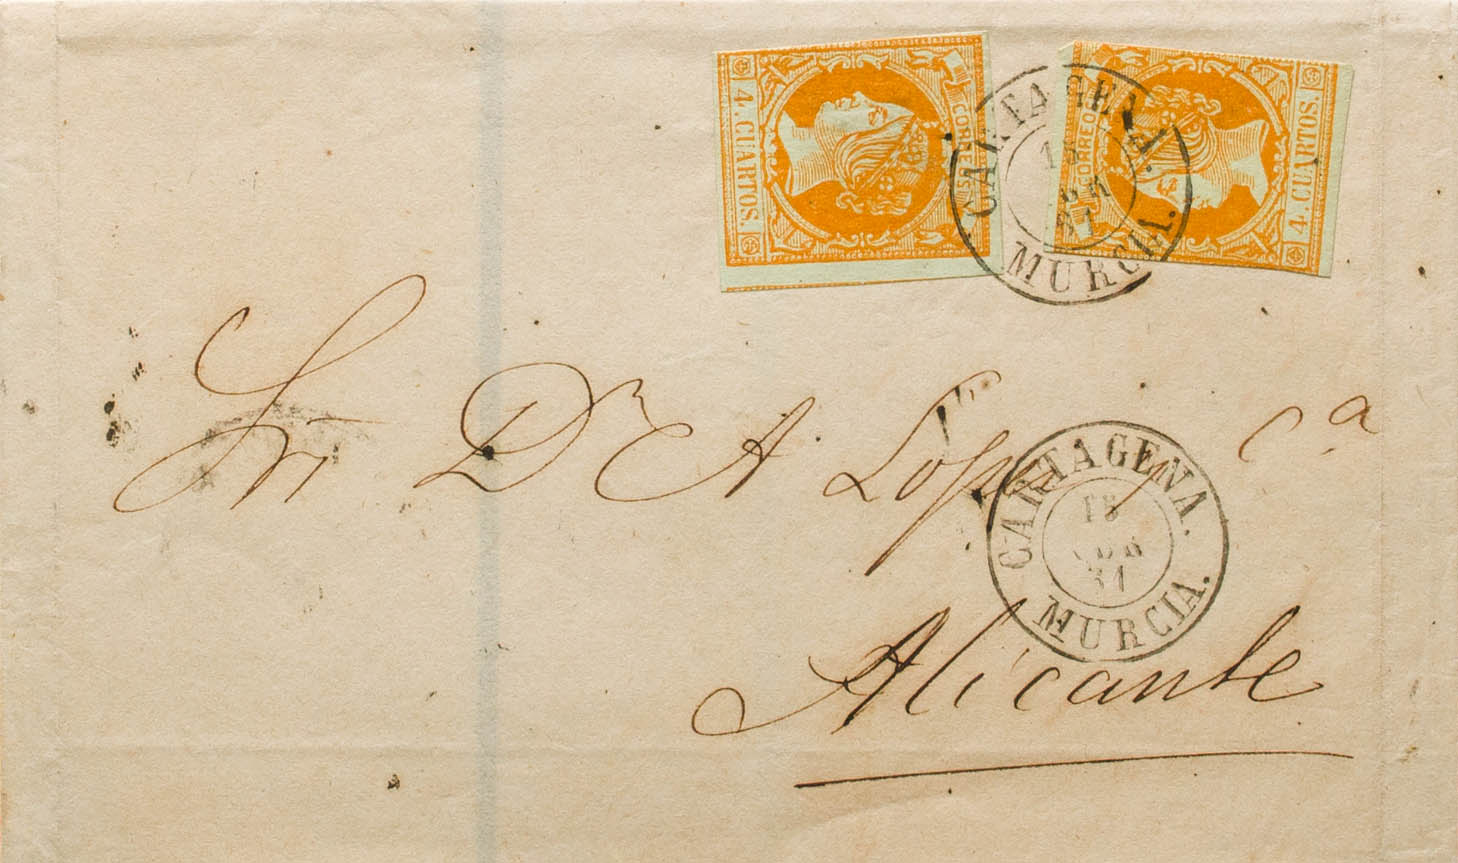 4. CUARTOS.
CORREOS
CORREOS
4. CUARTOS.
CARTAGENA.
MURCIA.
Sr Dn A Lopez y Ca
CARTAGENA.
18
MURCIA.
Alicante